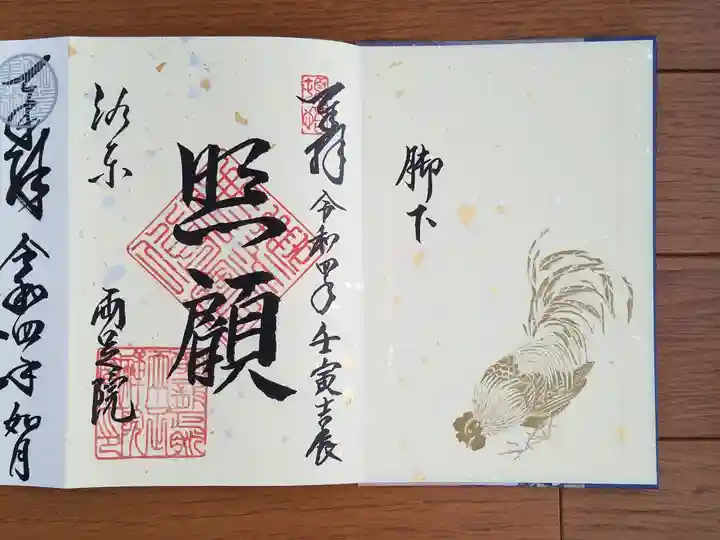 脚下
奉拝 令和四年 壬寅吉辰
照顧
洛东
両足院
奉拝 令和四年 如月